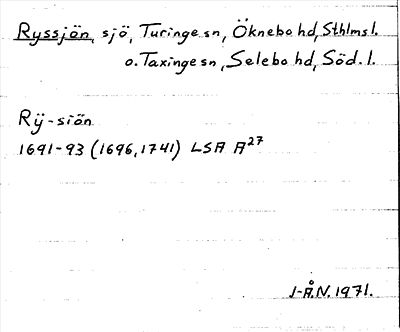 Ryssjön, sjö, Turinge sn, Öknebo hd, Sthlms l.
o. Taxinge sn, Selebo hd, Söd. l.
Rÿ-siön
1691-93 (1696, 1741) LSA A27
J-Å.N. 1971.